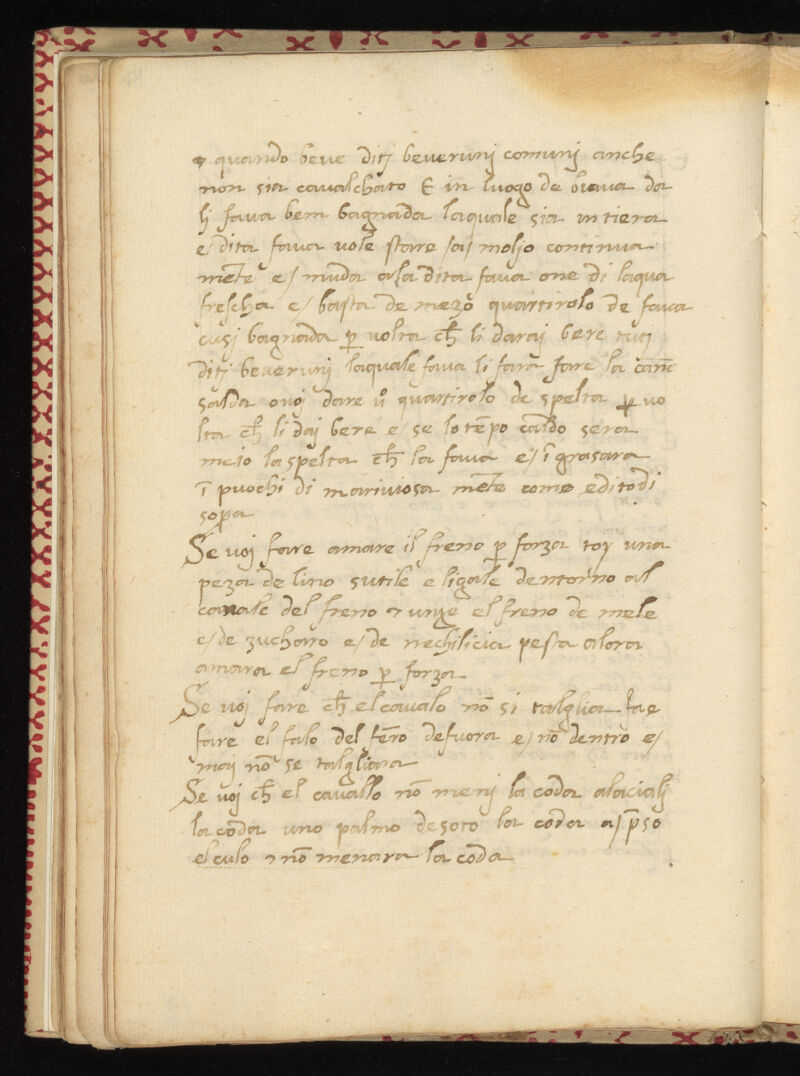 ⁊ quando beve ditj beverunj comunj anche
non sia cavalchato E in luogo de biava da
lj fava bem bagnada laquale sia intiera
e/ dita fava vole stare /a/ moljo continua
mēte e/ muda ala dita fava one di laqua
frescha e/ basta de mezo quartirolo de fava
cusj bagnada ꝑ volta ch̄ li daraj bere tutj
ditj beverunj laquale fava li fara fare la carne
salda ovoj dare uō quartirolo de spelta ꝑ vo
lta ch̄ li daj bere e/ se lo tēpo caldo sera
meio la spelta ch̄ la fava e/ īgrasara
ī puochi di mariviosa mēte como e dito di
sopra
Se voj fare amare il freno ꝑ forza toy una
peza de lino sutile e ligale dentorno al
canale del freno ⁊ unze el freno de mele
e/ de zucharo e/ de nechilicia pesta alora
amara el freno ꝑ forza
Se voj fare ch̄ el cavalo nō si talglia fae
fare el falo del fēro defuora e/ nō dentro e/
maj nō se talgliara
Se voj ch̄ el cavallo nō menj la coda alacialj
la coda uno palmo desoto la coda a/ p̄so
el culo ⁊ nō menara la coda